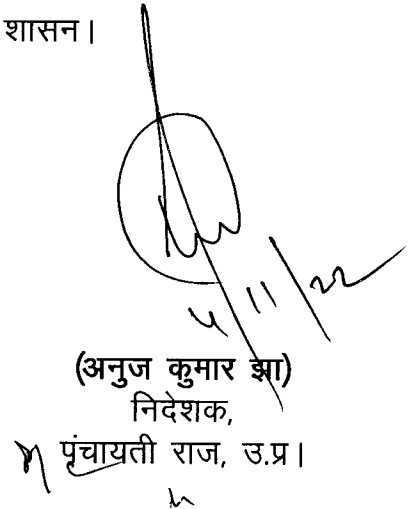 शासन।
4/11/22
(अनुज कुमार झा)
निदेशक,
पंचायती राज, उ.प्र।